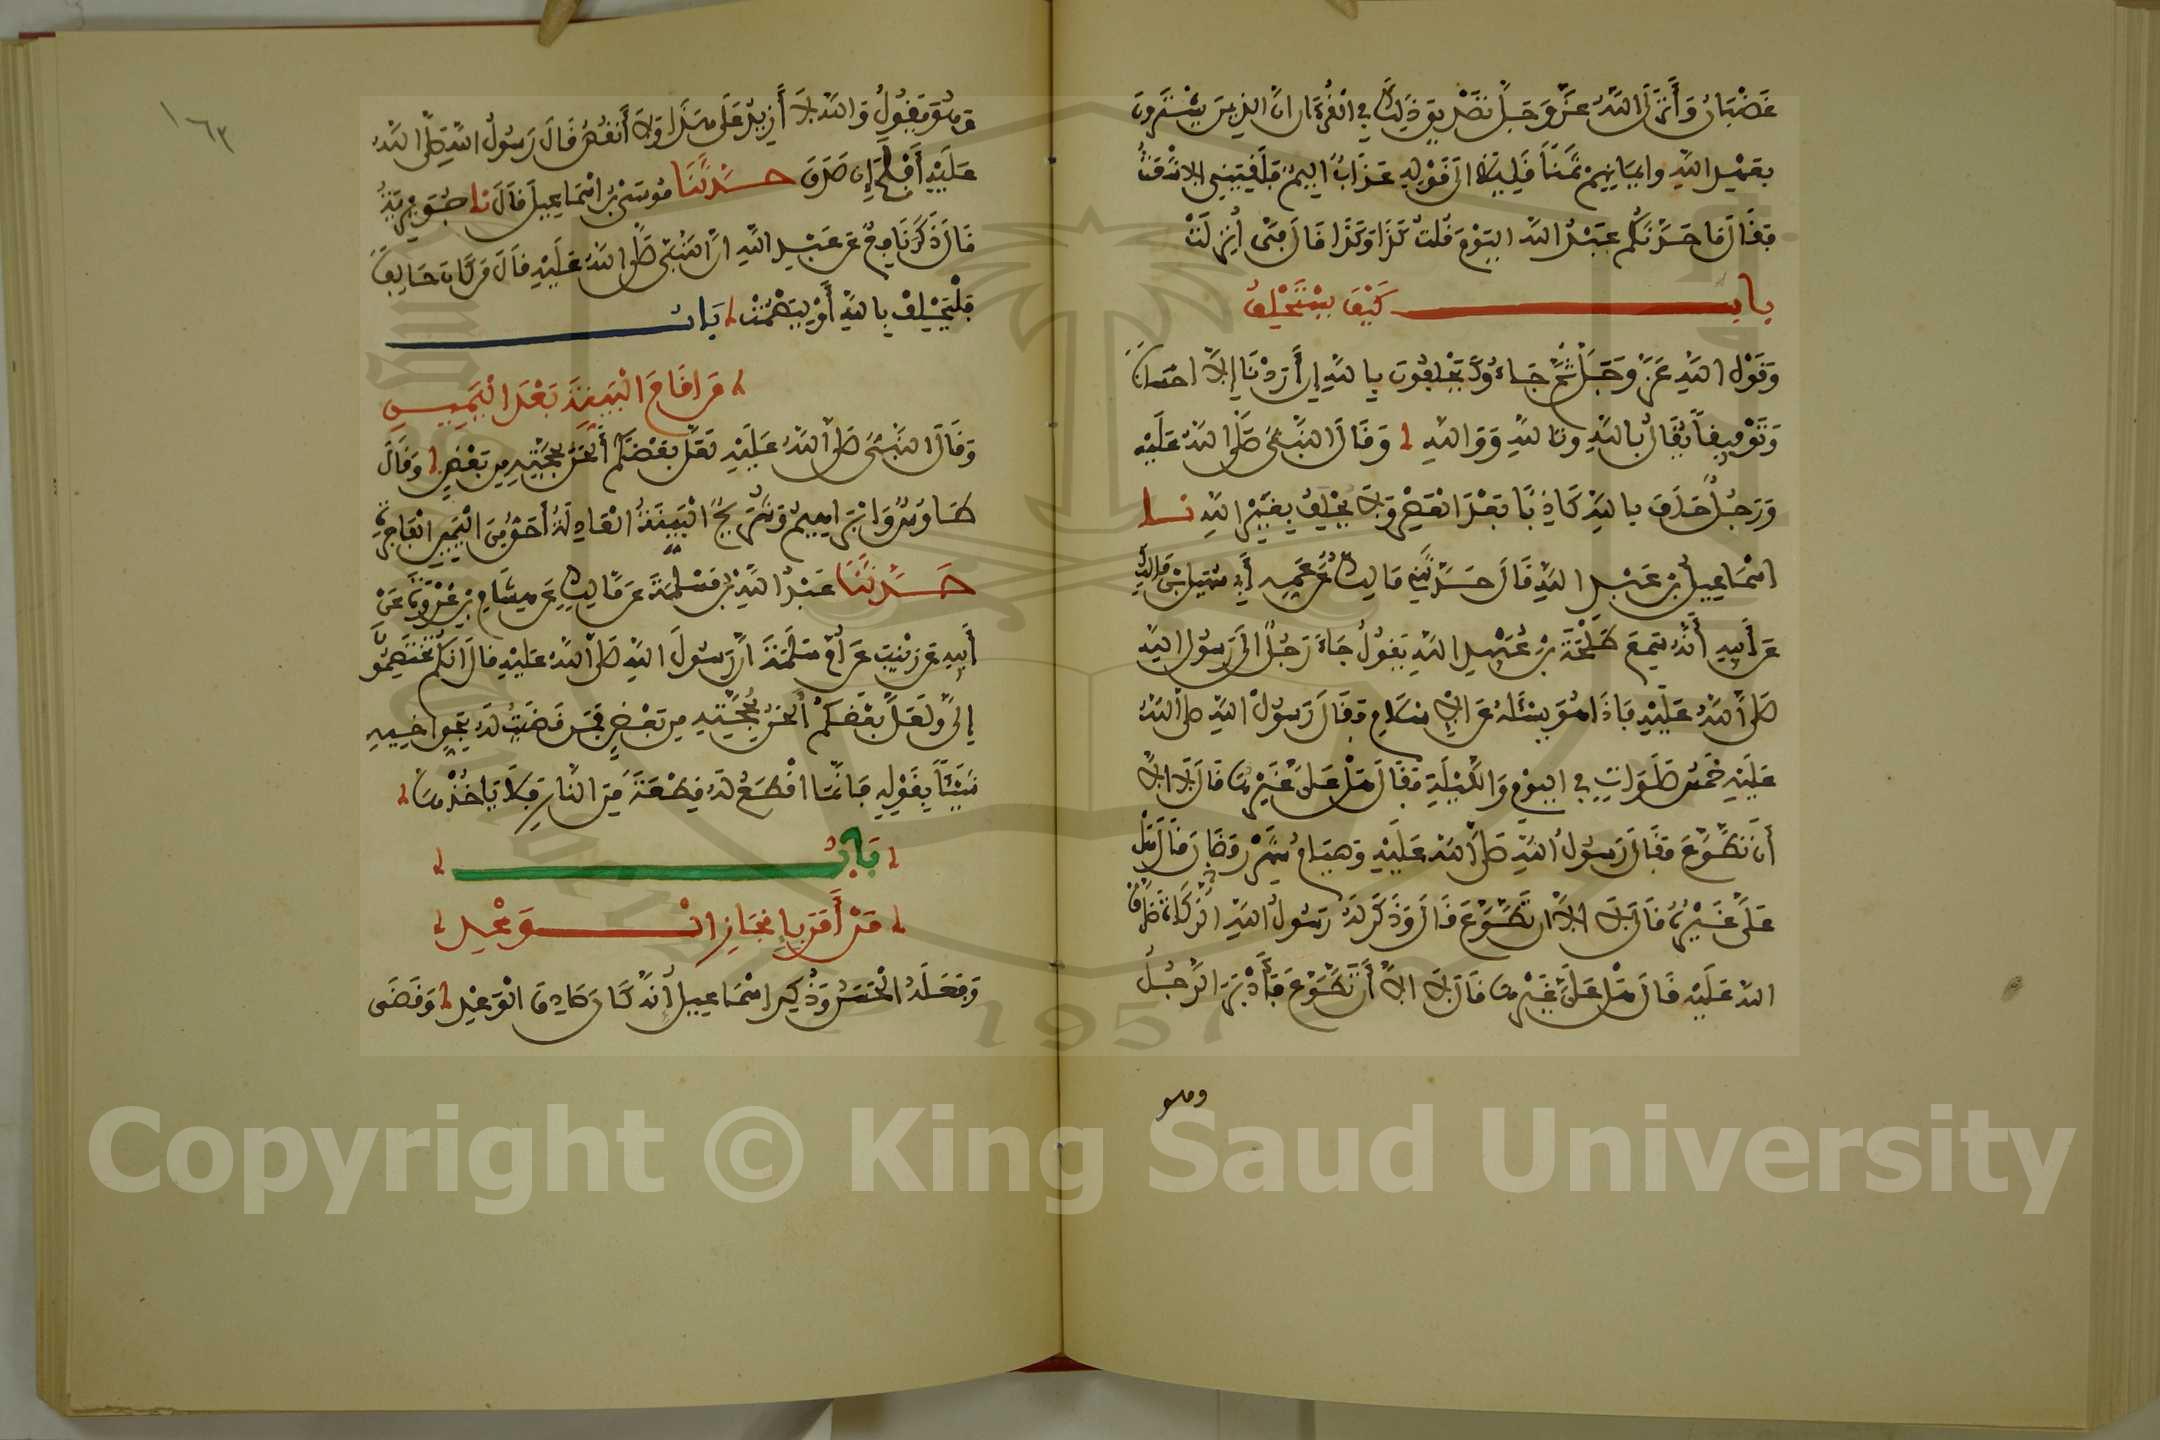 غَضْبَانُ وَأَنْزَلَ اللَّهُ عَزَّ وَجَلَّ تَصْدِيقَ ذَلِكَ فِي الْقُرْءَانِ انَّ الذِينَ يَشْتَرُونَ
بِعَهْدِ اللَّهِ وايمَانِهِمْ ثَمَناً قَلِيلاً الَى قَوْلِهِ عَذَابٌ الِيمٌ فَلَقِيَنِي الاشْعَثُ
فَقَالَ مَا حَدَّثَكُمْ عَبْدُ اللَّهِ الْيَوْمَ قُلْتُ كَذَا وَكَذَا قَالَ فِيَّ أُنْزِلَتْ
باب كَيْفَ يُسْتَحْلَفُ
وَقَوْلِ اللَّهِ عَزَّ وَجَلَّ ثُمَّ جَاءُوكَ يَحْلِفُونَ بِاللَّهِ إِنْ أَرَدْنَا إِلاَّ احْسَاناً
وَتَوْفِيقاً يُقَالُ بِاللَّهِ وتاللَّهِ وَوَاللَّهِ وَقَالَ النَّبِيُّ صَلَّى اللَّهُ عَلَيْهِ
وَرَجُلٌ حَلَفَ بِاللَّهِ كَاذِبًا بَعْدَ الْعَصْرِ وَلاَ يُحْلَفُ بِغَيْرِ اللَّهِ نا
اسْمَاعِيلُ بْنُ عَبْدِ اللَّهِ قَالَ حَدَّثَنِي مَالِكٌ عَنْ عَمِّهِ أَبِي سُهَيْلِ بْنِ مَالِكٍ
عَنْ أَبِيهِ أَنَّهُ سَمِعَ طَلْحَةَ بْنَ عُبَيْدِ اللَّهِ يَقُولُ جَاءَ رَجُلٌ الَى رَسُولِ اللَّهِ
صَلَّى اللَّهُ عَلَيْهِ فَاذَا هُوَ يَسْئَلُهُ عَنِ الاِسْلاَمِ فَقَالَ رَسُولُ اللَّهِ صَلَّى اللَّهُ
عَلَيْهِ خَمْسُ صَلَوَاتٍ فِي الْيَوْمِ وَاللَّيْلَةِ فَقَالَ هَلْ عَلَىَّ غَيْرُهَا قَالَ لاَ الاَّ
أَن تَطَّوَّعَ فَقَالَ رَسُولُ اللَّهِ صَلَّى اللَّهُ عَلَيْهِ وَصِيَامُ شَهْرِ رَمَضَانَ قَالَ هَلْ
عَلَىَّ غَيْرُهُ قَالَ لاَ الاَّ ان تَطَّوَّعَ قَالَ وَذَكَرَ لَهُ رَسُولُ اللَّهِ الزَّكَاةَ صَلَّى
اللَّهُ عَلَيْهِ قَالَ هَلْ عَلَىَّ غَيْرُهَا قَالَ لاَ الاَّ أَن تَطَّوَّعَ فَأَدْبَرَ الرَّجُلُ
وهو
١٦٣
وَهُوَ يَقُولُ وَاللَّهِ لاَ أَزِيدُ عَلَى هَذَا وَلاَ أَنقُصُ قَالَ رَسُولُ اللَّهِ صَلَّى اللَّهُ
عَلَيْهِ أَفْلَحَ إِن صَدَقَ حَدَّثَنَا مُوسَى بْنُ اسْمَاعِيلَ قَالَ نا جُوَيْرِيَةُ
قَالَ ذَكَرَ نَافِعٌ عَنْ عَبْدِ اللَّهِ انَّ النَّبِيَّ صَلَّى اللَّهُ عَلَيْهِ قَالَ مَن كَانَ حَالِفًا
فَلْيَحْلِفْ بِاللَّهِ أَوْ لِيَصْمُتْ بَابُ
مَن اقَامَ الْبَيِّنَةَ بَعْدَ الْيَمِينِ
وَقَالَ النَّبِيُّ صَلَّى اللَّهُ عَلَيْهِ لَعَلَّ بَعْضَكُمْ أَلْحَنُ بِحُجَّتِهِ مِن بَعْضٍ وَقَالَ
طَاوُسٌ وَابْرَاهِيمُ وَشُرَيْحٌ الْبَيِّنَةُ الْعَادِلَةُ أَحَقُّ مِنَ الْيَمِينِ الْفَاجِرَةِ
حَدَّثَنَا عَبْدُ اللَّهِ بْنُ مَسْلَمَةَ عَن مَّالِكٍ عَن هِشَامِ بْنِ عُرْوَةَ عَنْ
أَبِيهِ عَن زَيْنَبَ عَن أُمِّ سَلَمَةَ أَنَّ رَسُولَ اللَّهِ صَلَّى اللَّهُ عَلَيْهِ قَالَ انَّكُمْ تَخْتَصِمُونَ
إِلَيَّ وَلَعَلَّ بَعْضَكُمْ أَلْحَنُ بِحُجَّتِهِ مِن بَعْضٍ فَمَن قَضَيْتُ لَهُ بِحَقِّ اخِيهِ
شَيْئاً بِقَوْلِهِ فَانَّمَا اقْطَعُ لَهُ قِطْعَةً مِّنَ النَّارِ فَلاَ يَاخُذْهَا
بَابُ
مَنْ أَمَرَ بِانْجَازِ الْوَعْدِ
وَفَعَلَهُ الْحَسَنُ وَذُكِرَ اسْمَاعِيلُ أَنَّهُ كَانَ صَادِقَ الْوَعْدِ وَقَضَى
1957
Copyright © King Saud University